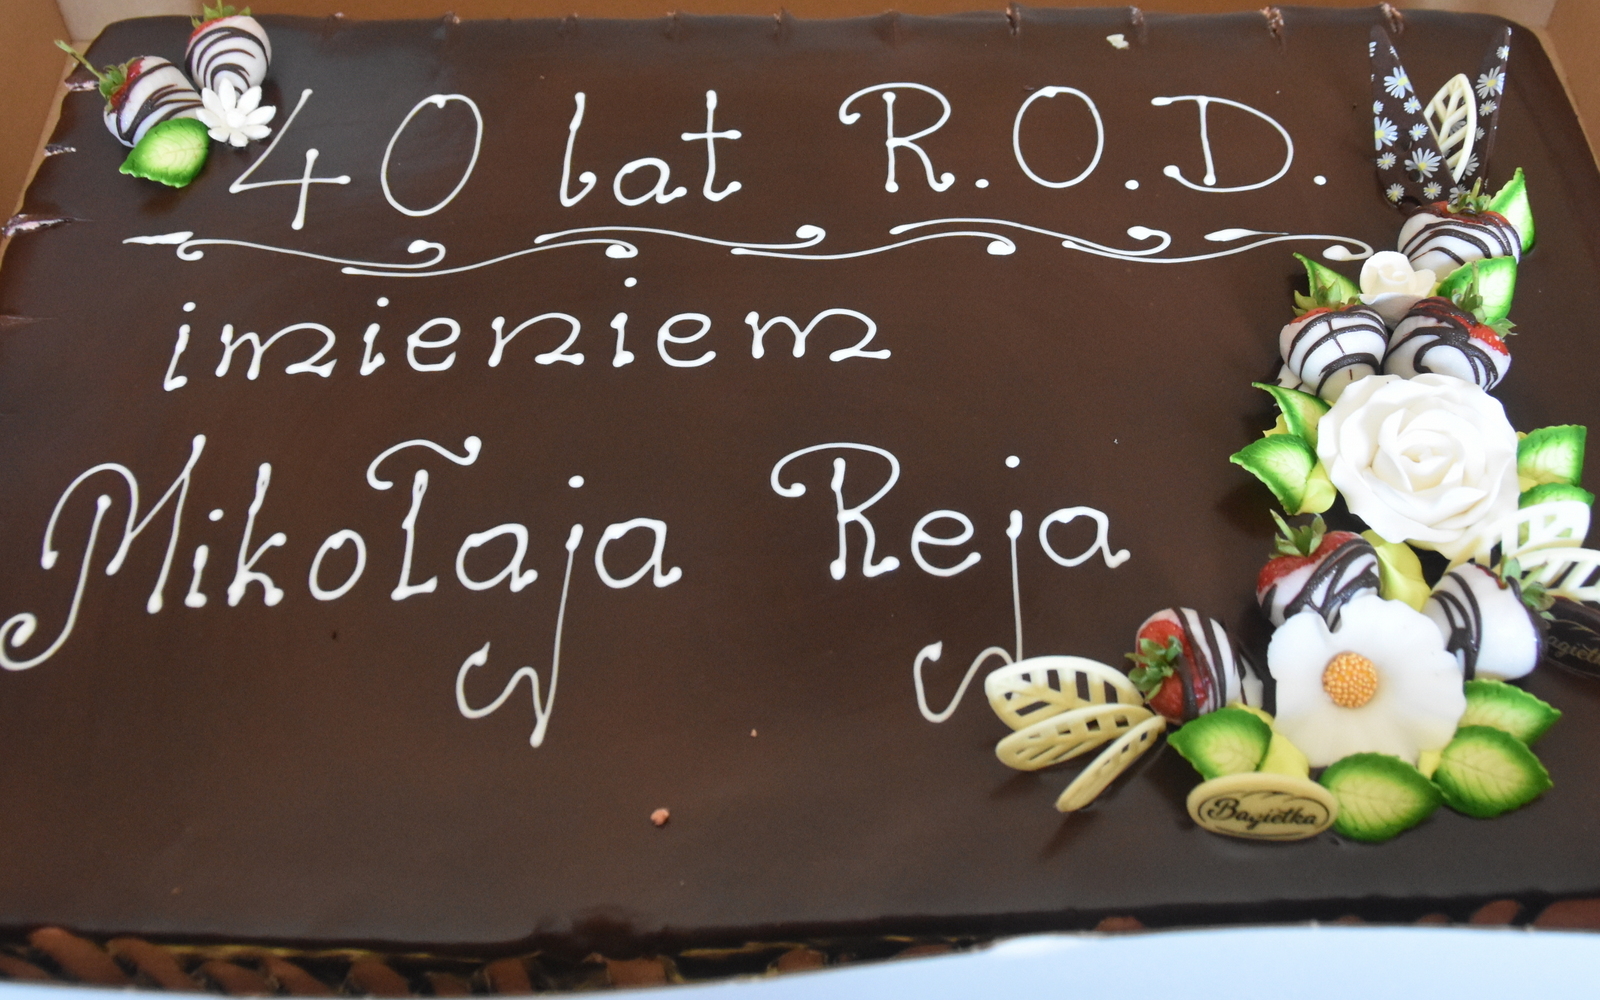 40 lat R.O.D.
imieniem
Mikołaja Reja
Bagietka